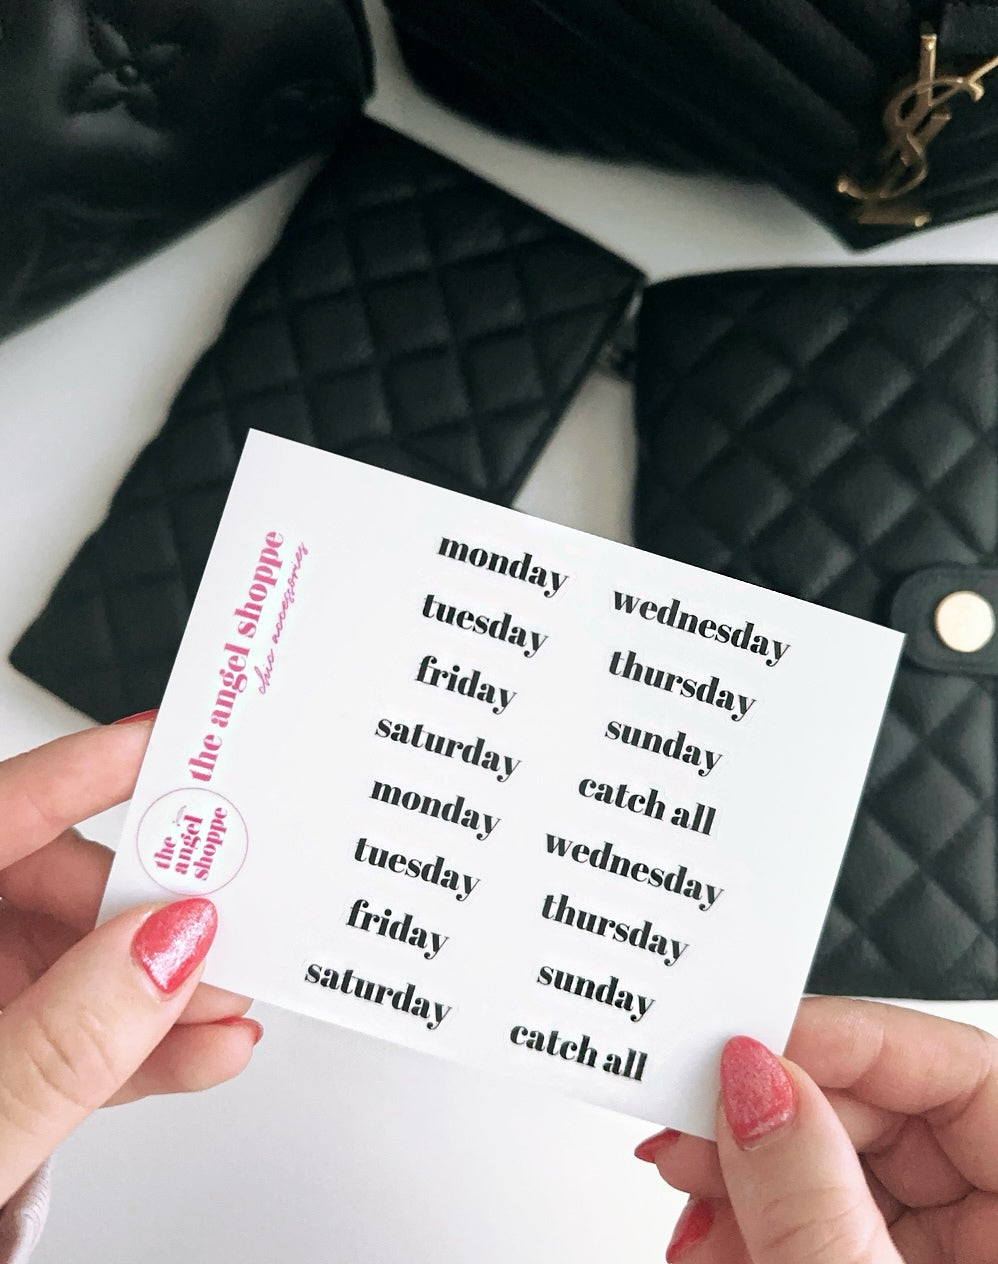 the angel shoppe
chic accessories
the
angel
shoppe
monday
tuesday
friday
saturday
monday
tuesday
friday
saturday
wednesday
thursday
sunday
catch all
wednesday
thursday
sunday
catch all
YSL